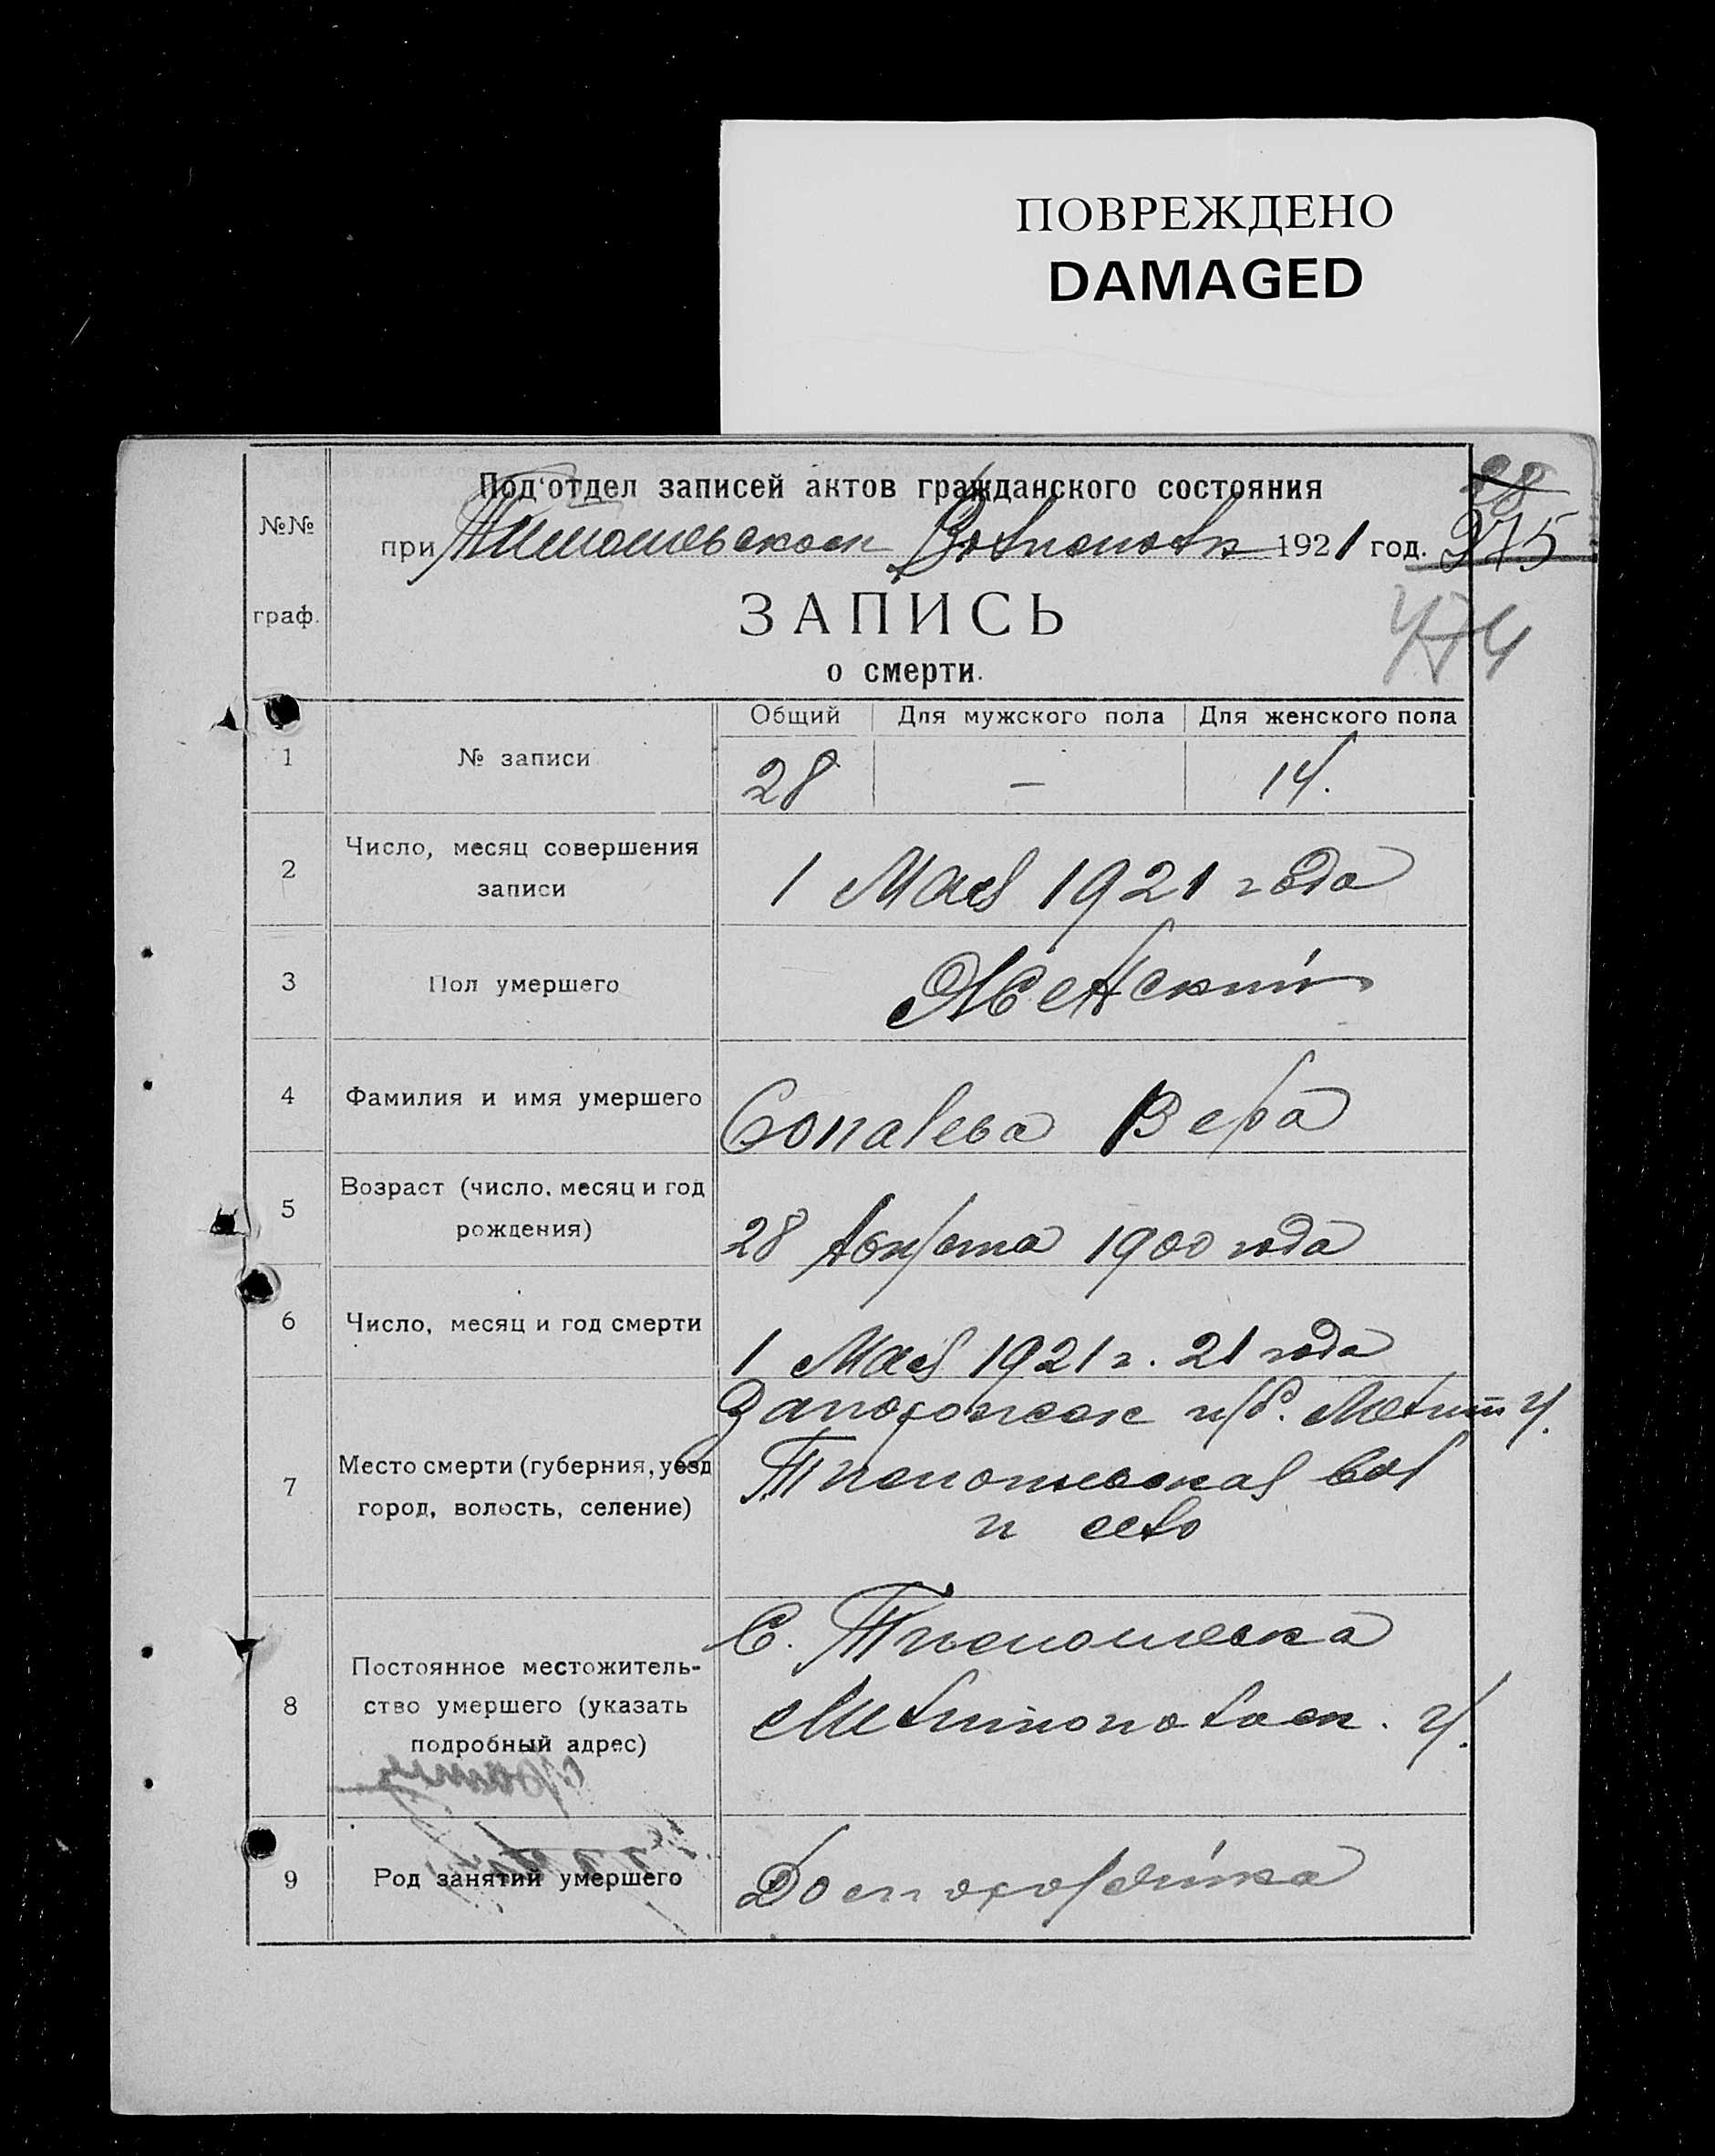 ПОВРЕЖДЕНО
DAMAGED
28
Под'отдел записей актов гражданского состояния
№№
при Тимошевском Волисполк 1921 год. 275
граф.
ЗАПИСЬ
474
о смерти.
Общий Для мужского пола Для женского пола
1 № записи 28 — 14.
2 Число, месяц совершения записи 1 Мая 1921 года
3 Пол умершего Женский
4 Фамилия и имя умершего Вера
5 Возраст (число, месяц и год рождения) 28 Августа 1900 года
6 Число, месяц и год смерти 1 Мая 1921 г. 21 года
7 Место смерти (губерния, уезд город, волость, селение) Запорожск губ. Мелит у.
Тимошевская вол
и село
8 Постоянное местожитель-
ство умершего (указать
подробный адрес)
С. Тимошевка
Мелитопольск. у.
9 Род занятий умершего